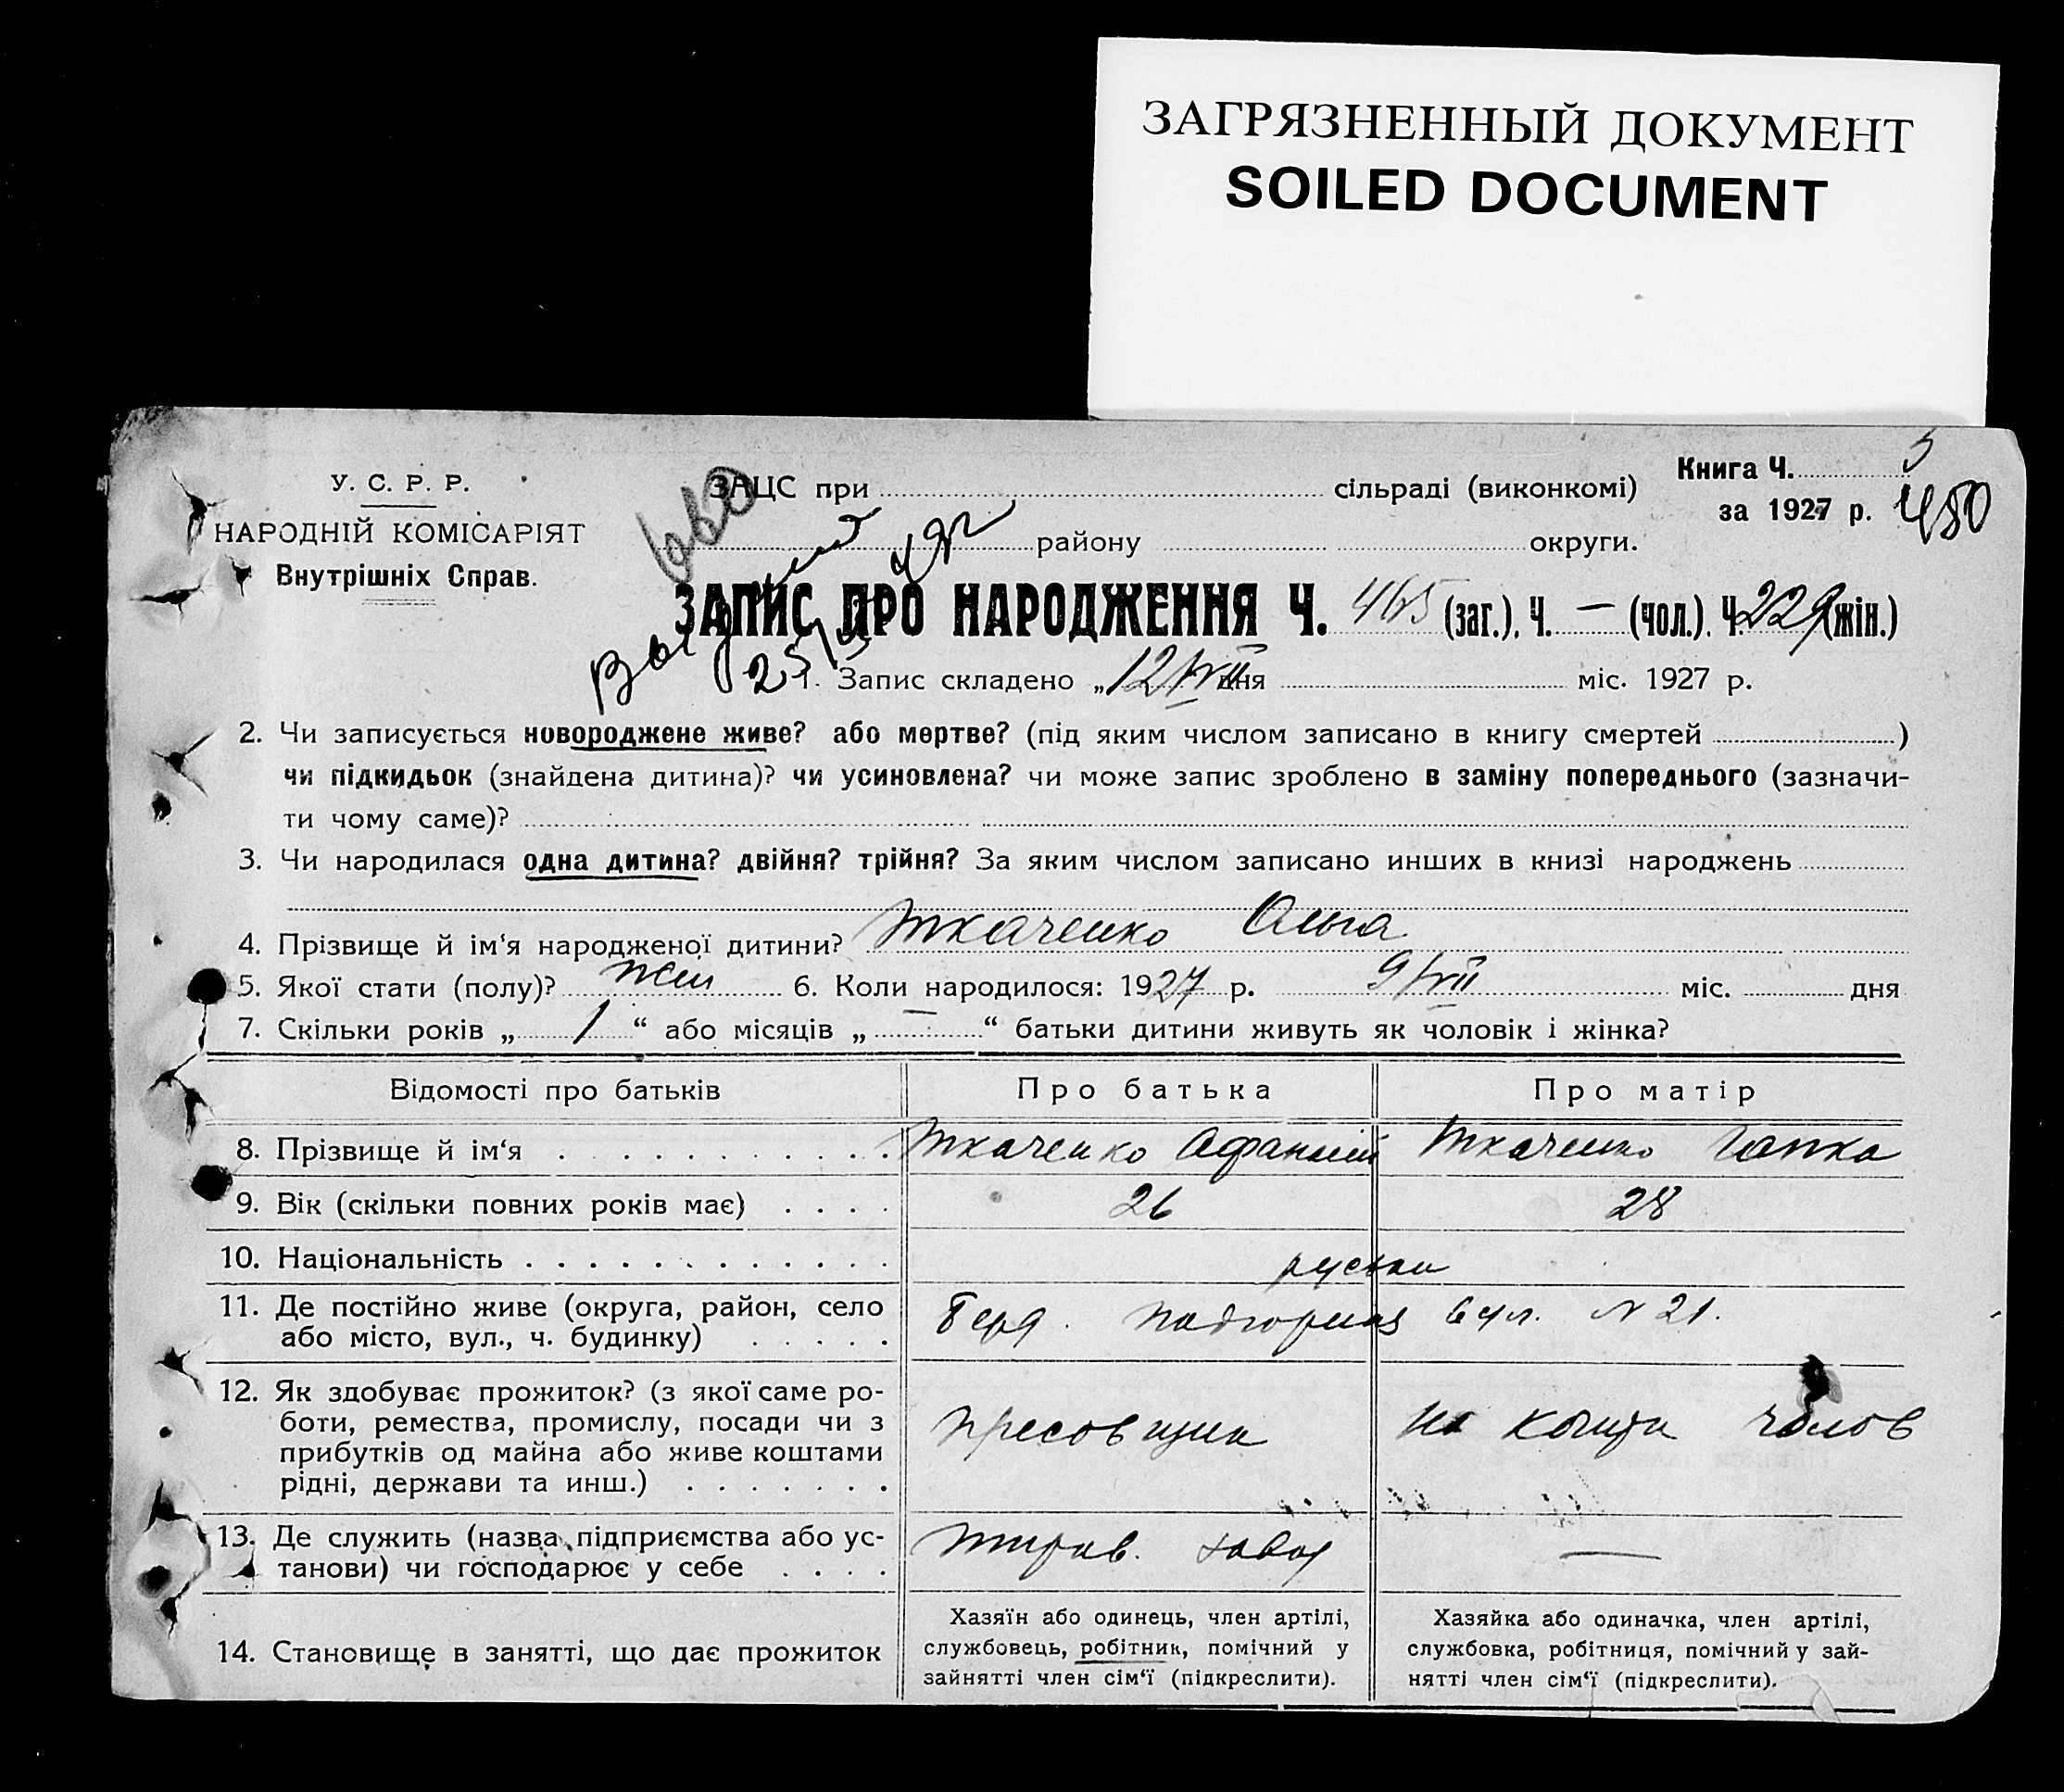 ЗАГРЯЗНЕННЫЙ ДОКУМЕНТ
SOILED DOCUMENT
У. С. Р. Р.
НАРОДНІЙ КОМІСАРІЯТ
Внутрішніх Справ.
ЗАЦС при сільраді (виконкомі)
району округи.
Книга Ч. 5
за 1927 р. 480
ЗАПИС ПРО НАРОДЖЕННЯ Ч. 465 (заг.). Ч. — (чол.). Ч. 229 (жін.)
1. Запис складено „12/VII дня міс. 1927 р.
2. Чи записується новороджене живе? або мертве? (під яким числом записано в книгу смертей )
чи підкидьок (знайдена дитина)? чи усиновлена? чи може запис зроблено в заміну попереднього (зазначи-
ти чому саме)?
3. Чи народилася одна дитина? двійня? трійня? За яким числом записано инших в книзі народжень
4. Прізвище й ім‘я народженої дитини? Ткаченко Ольга
5. Якої стати (полу)? жін 6. Коли народилося: 1927 р. 9/VII міс. дня
7. Скільки років „ 1 “ або місяців „ — “ батьки дитини живуть як чоловік і жінка?
Відомості про батьків Про батька Про матір
8. Прізвище й ім‘я Ткаченко Афанасій Ткаченко Гапка
9. Вік (скільки повних років має) 26 28
10. Національність руськи
11. Де постійно живе (округа, район, село
або місто, вул., ч. будинку) Берд. Подгорная вул. N 21.
12. Як здобуває прожиток? (з якої саме ро-
боти, ремества, промислу, посади чи з
прибутків од майна або живе коштами
рідні, держави та инш.)
пресовщик на кошти чолов
13. Де служить (назва підприємства або ус-
танови) чи господарює у себе
завод —
14. Становище в занятті, що дає прожиток
Хазяїн або одинець, член артілі,
службовець, робітник, помічний у
зайнятті член сім‘ї (підкреслити).
Хазяйка або одиначка, член артілі,
службовка, робітниця, помічний у зай-
нятті член сім‘ї (підкреслити).